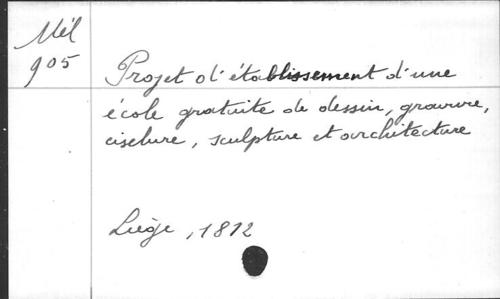 Mél
905
Projet d'établissement d'une
école gratuite de dessin, gravure,
ciselure, sculpture et architecture
Liège, 1812